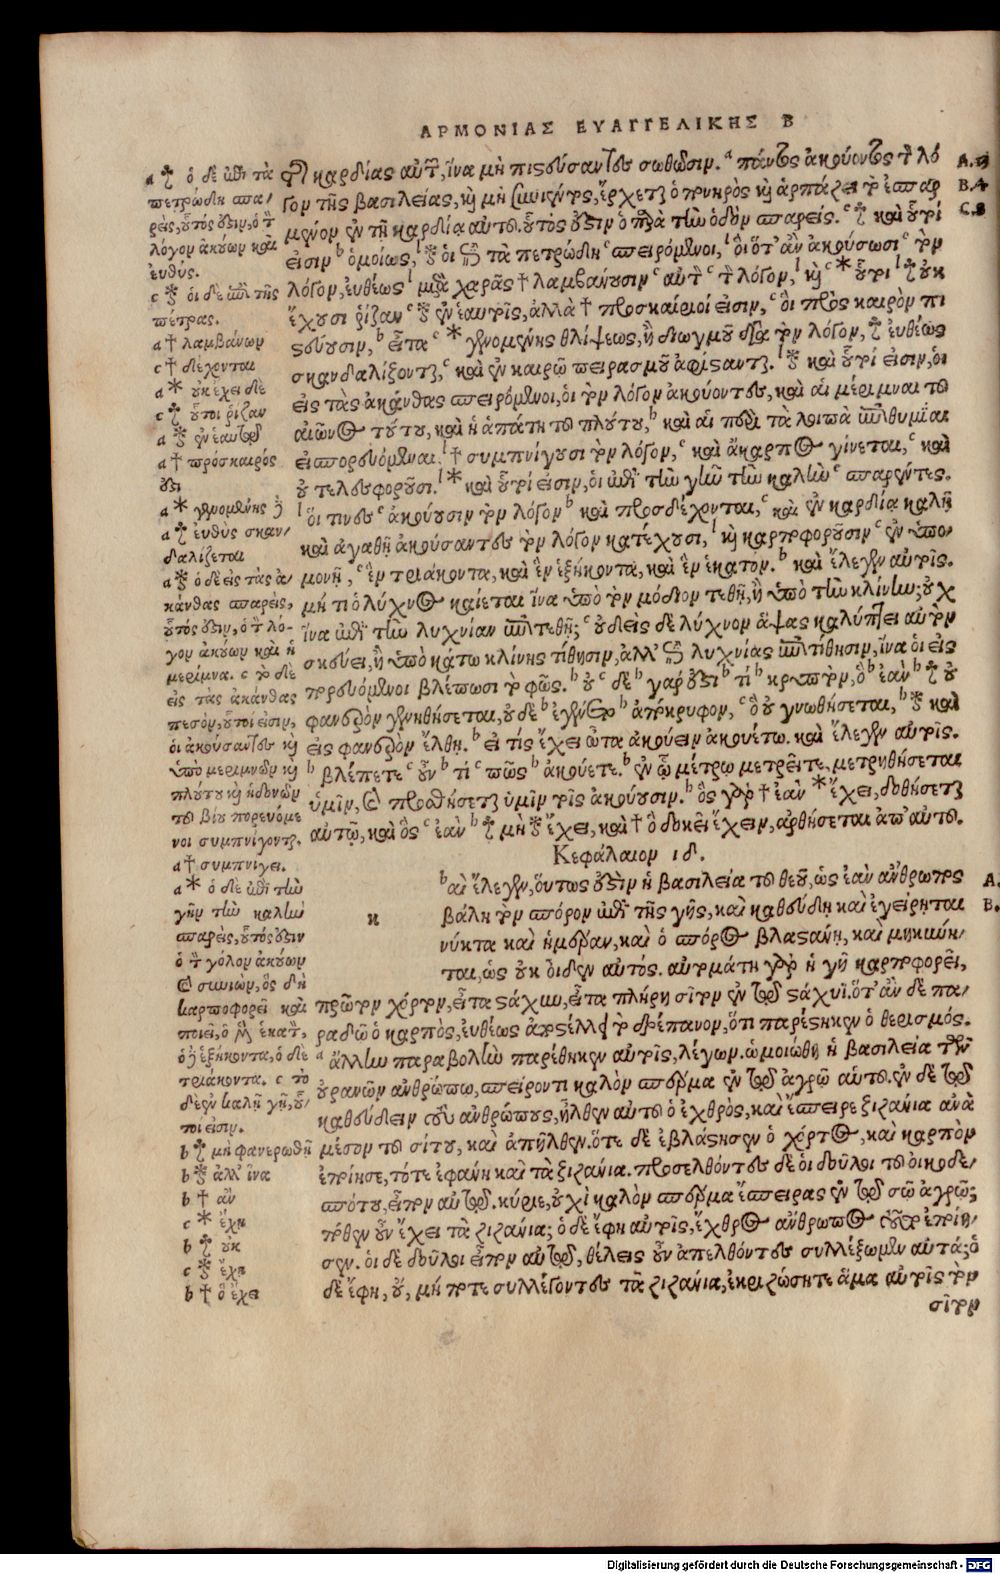 ΑΡΜΟΝΙΑΣ ΕΥΑΓΓΕΛΙΚΗΣ Β
τῆς καρδίας αὐτῶν, ἵνα μὴ πιστεύσαντες σωθῶσιν. a πάντος ἀκούοντος τὸν λό
γον τῆς βασιλείας, καὶ μὴ συνιέντος, ἔρχεται ὁ πονηρὸς καὶ ἁρπάζει τὸ ἐσπαρ
μένον ἐν τῇ καρδίᾳ αὐτοῦ. οὗτός ἐστιν ὁ παρὰ τὴν ὁδὸν σπαρείς. c ☨ καὶ οὗτοί
εἰσιν b ὁμοίως, l ※ οἱ ἐπὶ τὰ πετρώδη c σπειρόμενοι, l οἳ ὅτ' ἂν ἀκούσωσι c τὸν
λόγον, εὐθέως l μετὰ χαρᾶς † λαμβάνουσιν c αὐτὸν c τὸν λόγον, l καὶ c * οὗτοι l ☨ οὐκ
ἔχουσι ῥίζαν c ※ ἐν ἑαυτοῖς, ἀλλὰ † πρόσκαιροί εἰσιν, c οἳ πρὸς καιρὸν πι
στεύουσιν, b εἶτα c * γενομένης θλίψεως, ἢ διωγμοῦ διὰ τὸν λόγον, ☨ εὐθέως
σκανδαλίζονται, c καὶ ἐν καιρῷ πειρασμοῦ ἀφίστανται. l ※ καὶ οὗτοί εἰσιν, οἱ
εἰς τὰς ἀκάνθας σπειρόμενοι, οἱ τὸν λόγον ἀκούοντες, καὶ αἱ μέριμναι τοῦ
αἰῶνος τούτου, καὶ ἡ ἀπάτη τοῦ πλούτου, b καὶ αἱ περὶ τὰ λοιπὰ ἐπιθυμίαι
εἰσπορευόμεναι l † συμπνίγουσι τὸν λόγον, c καὶ ἄκαρπος γίνεται, c καὶ
οὐ τελεσφοροῦσι. l * καὶ οὗτοί εἰσιν, οἱ ἐπὶ τὴν γῆν τὴν καλὴν c σπαρέντες.
l οἵ τινες c ἀκούουσιν τὸν λόγον b καὶ προσδέχονται, c καὶ ἐν καρδίᾳ καλῇ
καὶ ἀγαθῇ ἀκούσαντες τὸν λόγον κατέχουσι, l καὶ καρποφοροῦσιν c ἐν ὑπο-
μονῇ, c ἓν τριάκοντα, καὶ ἓν ἑξήκοντα, καὶ ἓν ἑκατόν. b καὶ ἔλεγεν αὐτοῖς.
μή τι ὁ λύχνος καίεται ἵνα ὑπὸ τὸν μόδιον τεθῇ, ἢ ὑπὸ τὴν κλίνην; οὐχ
ἵνα ἐπὶ τὴν λυχνίαν ἐπιτεθῇ; c οὐδεὶς δὲ λύχνον ἅψας καλύπτει αὐτὸν
σκεύει, ἢ ὑπὸ κάτω κλίνης τίθησιν, ἀλλ' ἐπὶ λυχνίας ἐπιτίθησιν, ἵνα οἱ εἰς
πορευόμενοι βλέπωσι τὸ φῶς. b οὐ c δὲ b γάρ ἐστι b τί b κρυπτὸν, ὃ b ἐὰν b ☨ οὐ
φανερὸν γενηθήσεται, οὐδὲ b ἐγένετο b ἀπόκρυφον, c ὃ οὐ γνωθήσεται, b ※ καὶ
εἰς φανερὸν ἔλθῃ. b εἴ τίς ἔχει ὦτα ἀκούειν ἀκουέτω. καὶ ἔλεγεν αὐτοῖς.
b βλέπετε c οὖν b τί c πῶς b ἀκούετε. b ἐν ᾧ μέτρῳ μετρεῖτε, μετρηθήσεται
ὑμῖν, καὶ προστθήσεται ὑμῖν τοῖς ἀκούουσιν. b ὃς γὰρ † ἐὰν * ἔχει, δοθήσεται
αὐτῷ, καὶ ὃς c ἐὰν b ☨ μὴ ※ ἔχει, καὶ † ὃ δοκεῖ ἔχειν, ἀρθήσεται ἀπ' αὐτοῦ.
Κεφάλαιον ιδ.
κ
b αὶ ἔλεγεν, ὅυτως ἐστὶν ἡ βασιλεία τοῦ θεοῦ, ὡς ἐὰν ἄνθρωπος
βάλῃ τὸν σπόρον ἐπὶ τῆς γῆς, καὶ καθεύδῃ καὶ ἐγείρηται
νύκτα καὶ ἡμέραν, καὶ ὁ σπόρος βλαστάνῃ, καὶ μηκύνη-
ται, ὡς οὐκ οἶδεν αὐτός. αὐτομάτη γὰρ ἡ γῆ καρποφορεῖ,
πρῶτον χόρτον, εἶτα στάχυν, εἶτα πλήρη σῖτον ἐν τῷ στάχυϊ. ὅτ' ἂν δὲ πα-
ραδῶ ὁ καρπὸς, εὐθέως ἀποστέλλει τὸ δρέπανον, ὅτι παρέστηκεν ὁ θερισμός.
a ἄλλην παραβολὴν παρέθηκεν αὐτοῖς, λέγων. ὡμοιώθη ἡ βασιλεία τῶν
οὐρανῶν ἀνθρώπῳ, σπείροντι καλὸν σπέρμα ἐν τῷ ἀγρῷ αὑτοῦ. ἐν δὲ τῷ
καθεύδειν τοὺς ἀνθρώπους, ἦλθεν αὐτοῦ ὁ ἐχθρὸς, καὶ ἔσπειρε ζιζάνια ἀνὰ
μέσον τοῦ σίτου, καὶ ἀπῆλθεν. ὅτε δὲ ἐβλάστησεν ὁ χόρτος, καὶ καρπὸν
ἐποίησε, τότε ἐφάνη καὶ τὰ ζιζάνια. προσελθόντες δὲ οἱ δοῦλοι τοῦ οἰκοδε-
σπότου, εἶπον αὐτῷ. κύριε, οὐχὶ καλὸν σπέρμα ἔσπειρας ἐν τῷ σῷ ἀγρῷ;
πόθεν οὖν ἔχει τὰ ζιζάνια; ὁ δὲ ἔφη αὐτοῖς, ἔχθρος ἄνθρωπος τοῦτο ἐποίη-
σεν. οἱ δὲ δοῦλοι εἶπον αὐτῷ, θέλεις οὖν ἀπελθόντες συλλέξωμεν αὐτά; ὁ
δὲ ἔφη, οὔ, μήποτε συλλέγοντες τὰ ζιζάνια, ἐκριζώσητε ἅμα αὐτοῖς τὸν
σῖτον
A. 13
B. 4
C. 8
A.
B.
a ☨ ὁ δὲ ἐπὶ τὰ
πετρώδη σπα-
ρεὶς, οὗτός ἐστιν, ὁ τὸν
λόγον ἀκούων καὶ
εὐθύς.
c ※ οἱ δὲ ἐπὶ τῆς
πέτρας.
a † λαμβάνων
c † δέχονται
a * οὐκ ἔχει δὲ
c ☨ οὗτοι ῥίζαν
a ※ ἐν ἑαυτῷ
a † πρόσκαιρός
ἐστι
a * γενομένης δὲ
a ☨ εὐθὺς σκαν-
δαλίζεται
a ※ ὁ δὲ εἰς τὰς ἀ-
κάνθας σπαρεὶς,
οὗτός ἐστιν, ὁ τὸν λό-
γον ἀκούων καὶ ἡ
μέριμνα. c τὸ δὲ
εἰς τὰς ἀκάνθας
πεσὸν, οὗτοί εἰσιν,
οἱ ἀκούσαντες καὶ
ὑπὸ μεριμνῶν καὶ
πλούτου καὶ ἡδονῶν
τοῦ βίου πορευόμε
νοι συμπνίγονται.
a † συμπνίγει.
a * ὁ δὲ ἐπὶ τὴν
γῆν τὴν καλὴν
σπαρεὶς, οὗτός ἐστιν
ὁ τὸν λόγον ἀκούων
καὶ συνιὼν, ὃς δὴ
καρποφορεῖ καὶ
ποιεῖ, ὁ μὲν ἑκατὸν,
ὁ δὲ ἑξήκοντα, ὁ δὲ
τριάκοντα. c τὸ
δὲ ἐν καλῇ γῇ, οὗ-
τοί εἰσιν.
b ☨ μὴ φανερωθῇ
b ※ ἀλλ' ἵνα
b † ἂν
c * ἔχῃ
b ☨ οὐκ
c ※ ἔχῃ
b † ὃ ἔχει
Digitalisierung gefördert durch die Deutsche Forschungsgemeinschaft - DFG